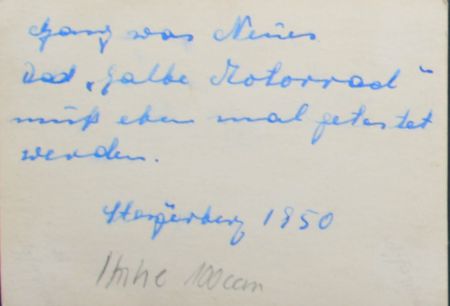 Ganz was Neues
Das „halbe Motorrad“
muß eben mal getestet
werden.
1950
100ccm